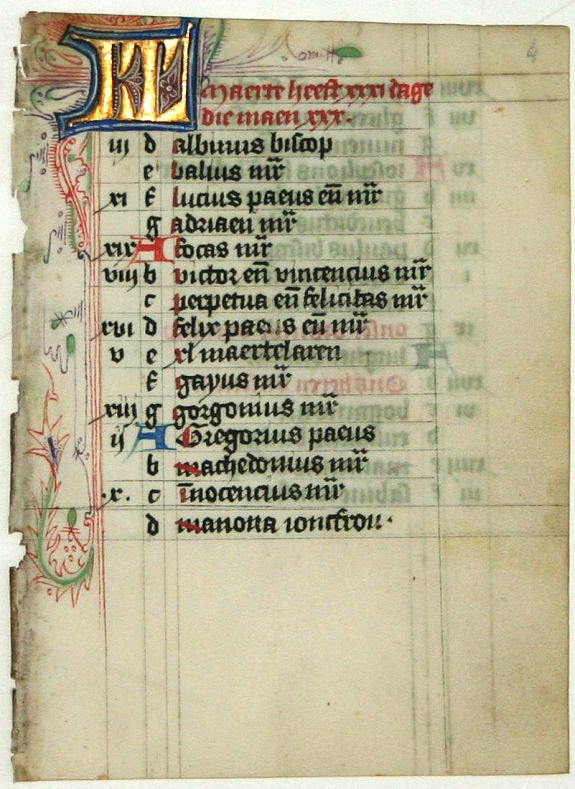 KL Maerte heeft xxxi dage
die maen xxx.
iij d albinus biscop
e balius mr̄
xi f lucius paeus en̄ mr̄
g adriaen mr̄
xix A focas mr̄
viij b victor en̄ vincencius mr̄
c perpetua en̄ felicitas mr̄
xvi d felix paeus en̄ mr̄
v e xl maertelaren
f gayus mr̄
xiij g gorgonius mr̄
ij A Gregorius paeus
b machedonius mr̄
.x. c īnocencius mr̄
d ioncfrou.
4